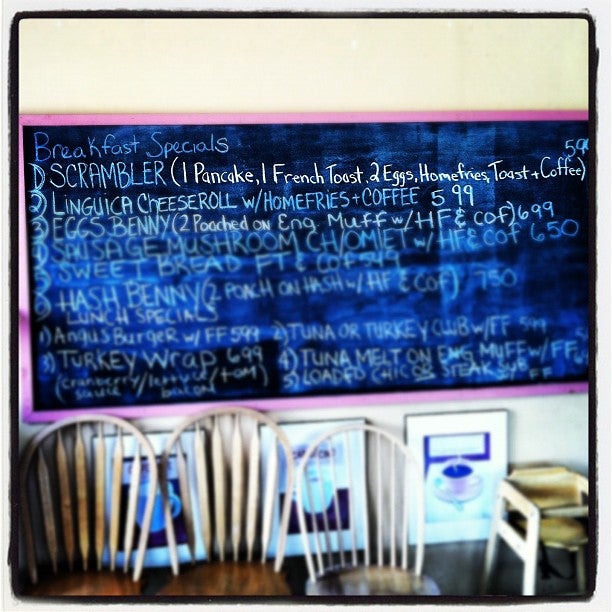 Breakfast Specials
599
1) SCRAMBLER (1 Pancake, 1 French Toast, 2 Eggs, Homefries, Toast + Coffee)
2) LINGUICA CHEESEROLL w/ HOMEFRIES + COFFEE 5 99
3) EGGS BENNY (2 Poached on Eng Muff w/ HF & cof) 699
SAUSAGE MUSHROOM CH/OMLET w/ HF & COF 650
SWEET BREAD FT & COF 549
HASH BENNY (2 POACH ON HASH w/ HF & COF) 750
LUNCH SPECIALS
1) Angus Burger w/ FF 599 2) TUNA OR TURKEY CLUB w/ FF 599
3) TURKEY Wrap 699 4) TUNA MELT ON Eng Muff w/ FF
(cranberry/lettuce/tom) 5) LOADED CHIC OR STEAK SUB FF
sauce bacon